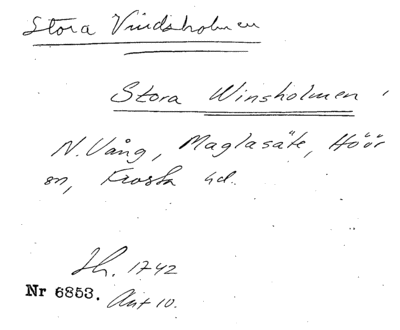 Stora Vindsholmen
Stora Winsholmen,
N. Vång, Maglasäte, Höör
sn, Frosta hd.
Jh. 1742
Nr 6853. Akt 10.